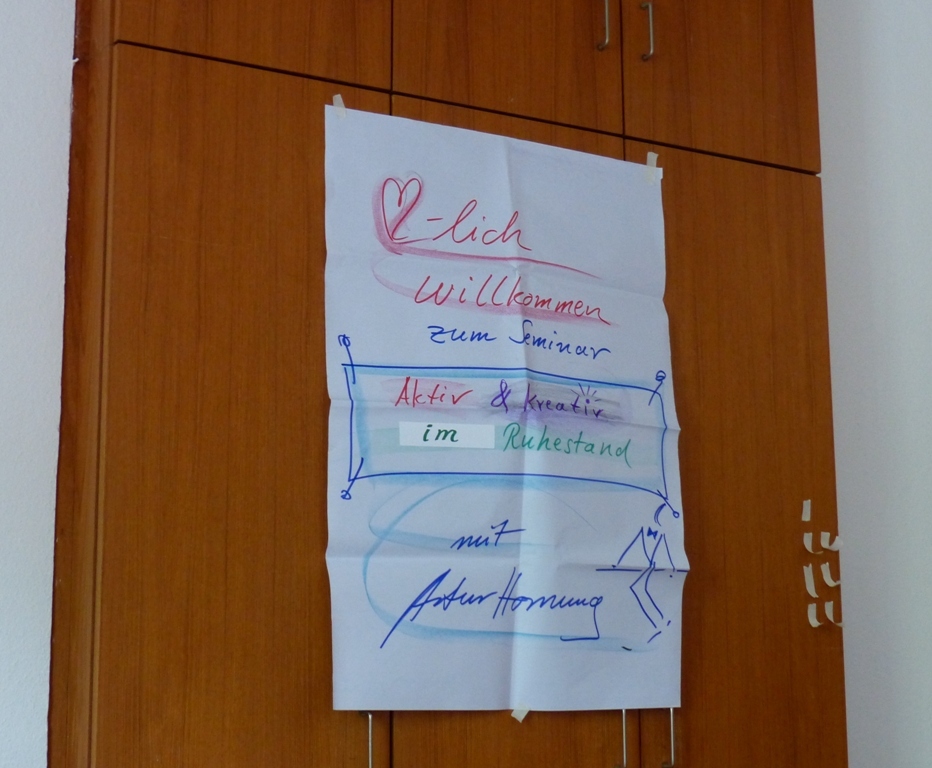 ♡-lich
Willkommen
zum Seminar
Aktiv & kreativ
im Ruhestand
mit
Artur Hornung